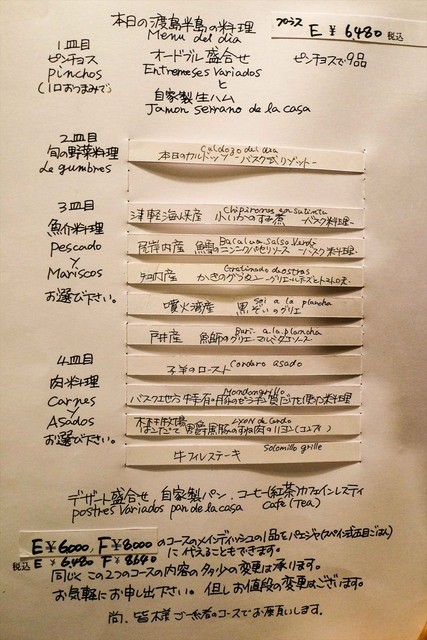 本日の渡島半島の料理
Menu del dia
プランス E ¥6480 税込
1皿目
ピンチョス
pinchos
(1口おつまみで)
オードブル盛合せ
Entremeses variados
と
自家製生ハム
Jamon serrano de la casa
ピンチョスで9品
2皿目
旬の野菜料理
de gumbres
Caldozo del dia
本日のカルドッゾ -バスク式リゾット-
3皿目
魚介料理
Pescado
y
Mariscos
お選び下さい。
Chipirones en su tinta
津軽海峡産 小いかのすみ煮 -バスク料理-
Bacalua Salsa Verde
尾岸内産 鱈のニンニクパセリソース -バスク料理-
Gratinado de ostras
知内産 かきのグラタン
Soi a la plancha
噴火湾産 黒ぞいのグリエ
Buri a.la.plancha
戸井産
4皿目
肉料理
Carnes
y
Asados
お選び下さい。
Cordero asado
子羊のロースト
Mondongrillo
バスク地方 特有の豚のモツ
木村牧場
はこだて 男爵黒豚のすね肉のリヨン(コンフィ)
Solomillo grille
牛フィレステーキ
デザート盛合せ、自家製パン、コーヒー(紅茶)カフェインレスティ
postres variados pan de la casa Cafe (Tea)
E ¥6000, F ¥8000 のコースのメインディッシュの1品をパエジャ(スペイン式五目ごはん)
税込 E ¥6480 F ¥8640 に代えることもできます。
同じく この2つのコースの内容の多少の変更は承ります。
お気軽にお申し出下さい。但しお値段の変更はございます。
尚、皆木様ご一緒のコースでお願いします。